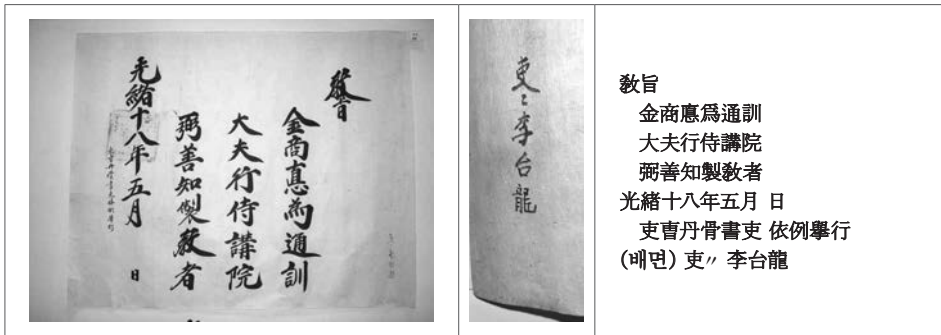 敎旨
金商悳爲通訓
大夫行侍講院
弼善知製敎者
光緖十八年五月 日
吏〻李台龍
敎旨
金商悳爲通訓
大夫行侍講院
弼善知製敎者
光緖十八年五月 日
吏曺丹骨書吏 依例擧行
(배면) 吏〃 李台龍